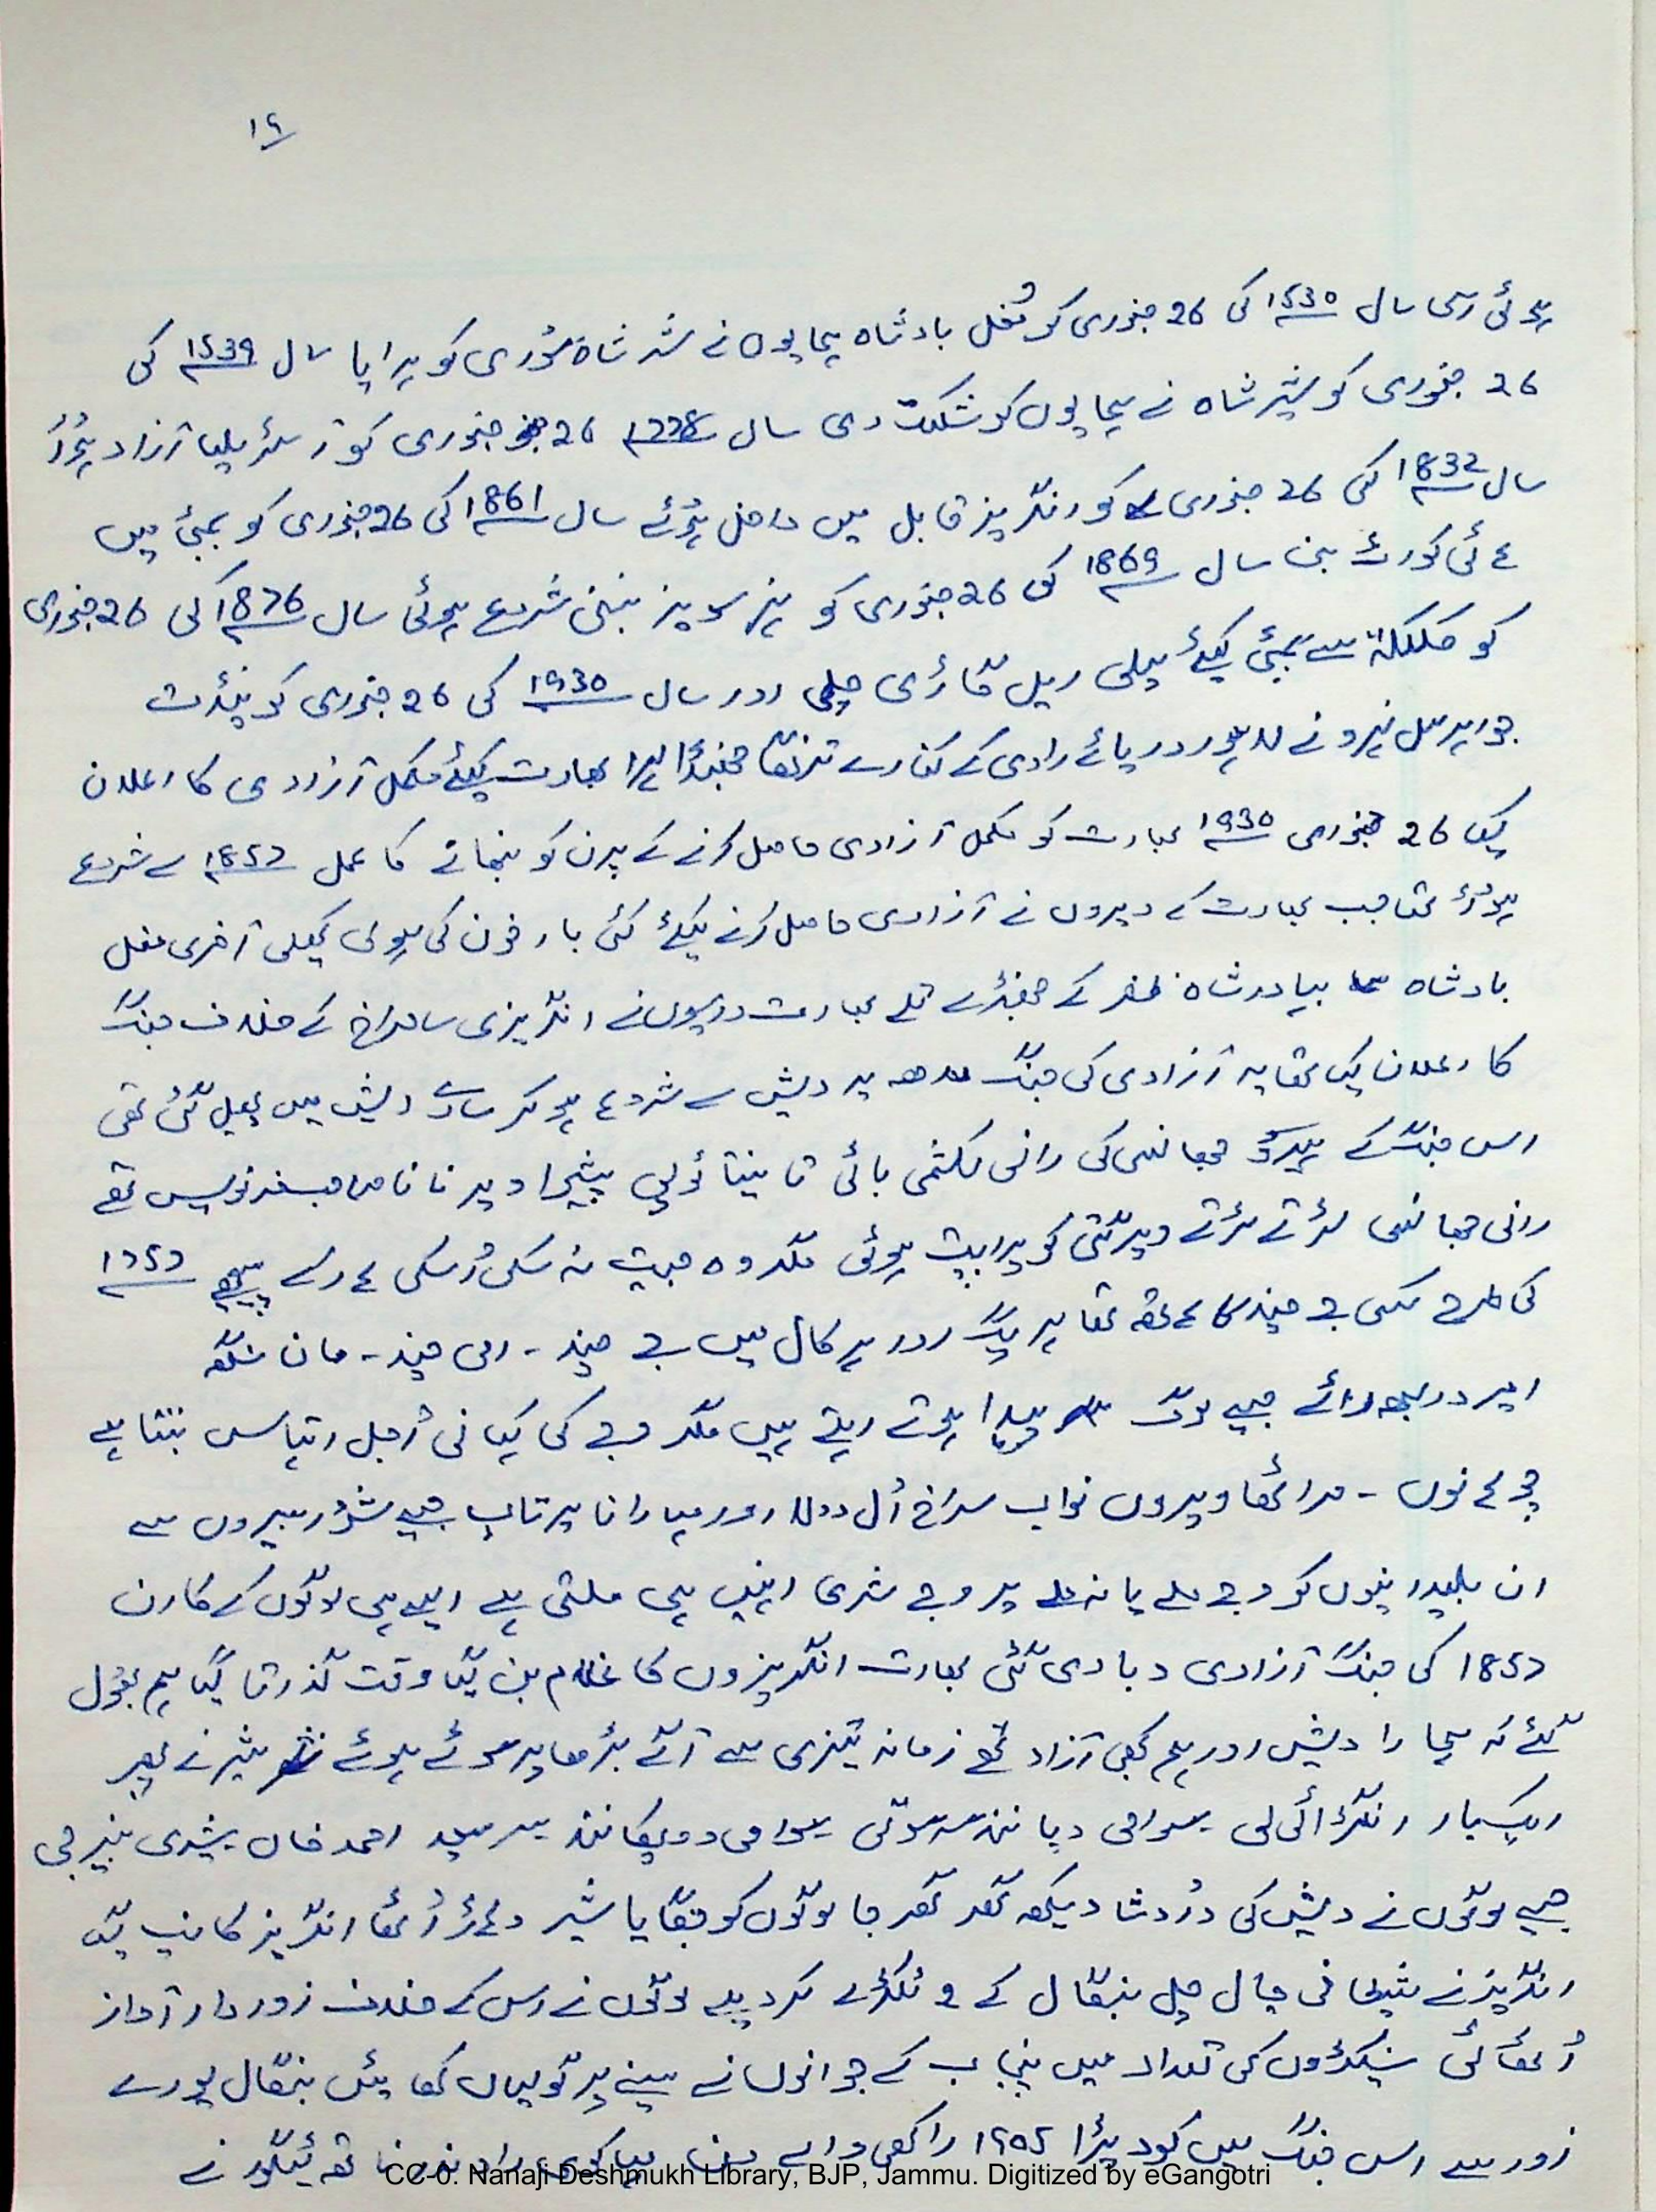 ١٩
ہوئی اسی سال 1530 کی 26 جنوری کو مُغل بادشاہ ہمایوں نے شیر شاہ سُوری کو ہرایا سال 1539 کی
26 جنوری کو شیر شاہ نے ہمایوں کو شکست دی سال 26 جنوری کو آسٹریلیا آزاد ہُوا
سال 1832 کی 26 جنوری کو انگریز قابل میں داخل ہُوئے سال 1861 کی 26 جنوری کو بمبئی میں
ہائی کورٹ بنا سال 1869 کی 26 جنوری کو نہر سویز بننی شروع ہوئی سال 1876 کی 26 جنوری
کو کلکتہ سے بمبئی کیلئے پہلی ریل گاڑی چلی اور سال 1930 کی 26 جنوری کو پنڈت
جواہر لال نہرو نے لاہور دریائے راوی کے کنارے ترنگا جھنڈا لہرا بھارت کیلئے مکمل آزادی کا اعلان
کیا 26 جنوری 1930 بھارت کو مکمل آزادی حاصل کرنے کے پرن کو نبھانے کا عمل 1857 سے شروع
ہوُا تھا جب بھارت کے ویروں نے آزادی حاصل کرنے کیلئے کئی بار خون کی ہولی کھیلی آخری مغل
بادشاہ بہادر شاہ ظفر کے جھنڈے تلے بھارت واسیوں نے انگریزی سامراج کے خلاف جنگ
کا اعلان کیا تھا یہ آزادی کی جنگ مدھیہ پردیش سے شروع ہو کر سارے دیش میں پھیل گئی تھی
اس جنگ کے ہیرو جھانسی کی رانی لکشمی بائی تانیتا ٹوپے پیشوا ویر نانا صاحب فرنویس تھے
رانی جھانسی لڑتے لڑتے ویرگتی کو پراپت ہوئی مگر وہ جیت نہ سکی اُسکی ہار کے پیچھے 1757
کی طرح کسی جے چند کا ہاتھ تھا ہر یگ اور ہر کال میں جے چند - امی چند - مان سنگھ
اہر دریجھ رائے جیسے لوگ پیدا ہوتے رہتے ہیں مگر وجے کی کہانی اُجل اتہاس بنتا ہے
چوہانوں - مراٹھا ویروں نواب سراج اُل دولا اور مہارانا پرتاپ جیسے شُوربیروں سے
ان بلیدانیوں کو وجے ملے یا نہ ملے پر وجے شری انہیں ہی ملتی ہے ایسے ہی لوگوں کے کارن
1857 کی جنگ آزادی دبا دی گئی بھارت انگریزوں کا غلام بن گیا وقت گذرتا گیا ہم بھول
گئے کہ ہمارا دیش اور ہم کبھی آزاد تھے زمانہ تیزی سے آگے بڑھا پر سوئے ہوئے شیر نے پھر
ایکبار انگڑائی لی سوامی دیانند سرسوتی سوامی وویکانند سر سید احمد خاں بینرجی
جیسے لوگوں نے دیش کی دُردشا دیکھ گھر گھر جا لوگوں کو جگایا شیر دہاڑ اُٹھا انگریز کانپ گیا
انگریز نے شیطانی چال چل بنگال کے 2 ٹکڑے کر دیے لوگوں نے اس کے خلاف زوردار آواز
اُٹھائی سینکڑوں کی تعداد میں پنجاب کے جوانوں نے سینے پر گولیاں کھائیں بنگال پورے
زور سے اس جنگ میں کود پڑا 1905 راکھی والے دن مہاکوی رابندر ناتھ ٹیگور نے
CC-0. Nanaji Deshmukh Library, BJP, Jammu. Digitized by eGangotri